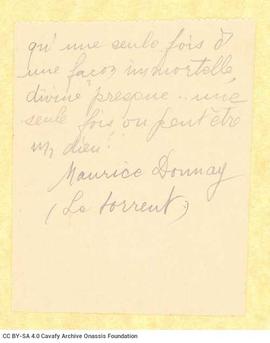 qu'une seule fois d'
une façon immortelle,
divine presque... une
seule fois on peut être
un dieu!"
Maurice Donnay
(Le torrent)
CC BY-SA 4.0 Cavafy Archive Onassis Foundation